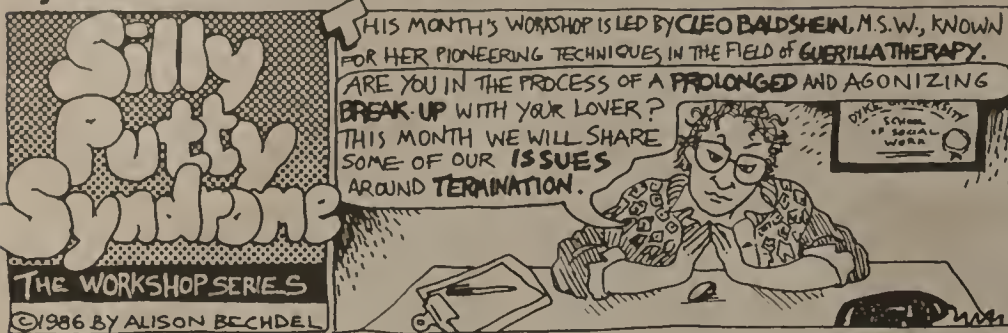 Silly
Putty
Syndrome
THE WORKSHOP SERIES
©1986 BY ALISON BECHDEL
THIS MONTH'S WORKSHOP IS LED BY CLEO BALDSHEIN, M.S.W., KNOWN
FOR HER PIONEERING TECHNIQUES IN THE FIELD OF GUERILLA THERAPY.
ARE YOU IN THE PROCESS OF A PROLONGED AND AGONIZING
BREAK-UP WITH YOUR LOVER?
THIS MONTH WE WILL SHARE
SOME OF OUR ISSUES
AROUND TERMINATION.
DYKE UNIVERSITY
SCHOOL
OF SOCIAL
WORK